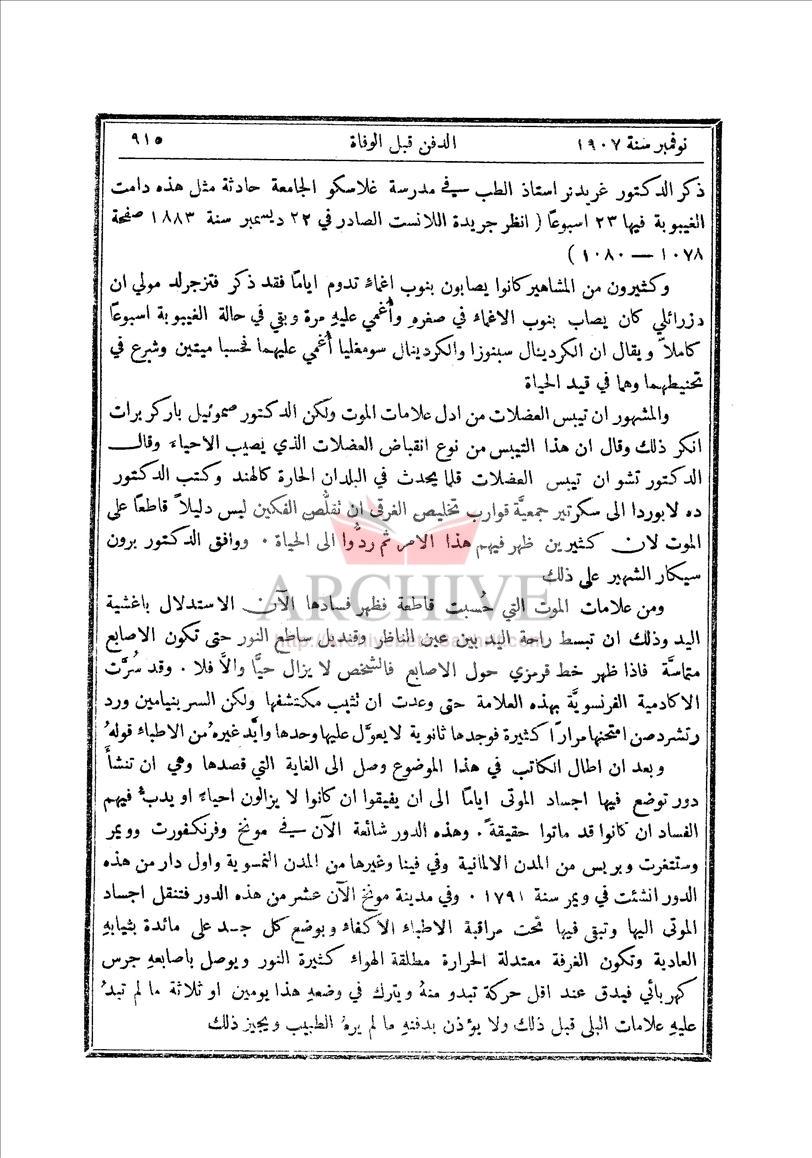 نوفمبر سنة ١٩٠٧
الدفن قبل الوفاة
٩١٥
ذكر الدكتور غريدنر استاذ الطب في مدرسة غلاسكو الجامعة حادثة مثل هذه دامت
الغيبوبة فيها ٢٣ اسبوعًا ( انظر جريدة اللانست الصادر في ٢٢ ديسمبر سنة ١٨٨٣ صفحة
١٠٧٨ — ١٠٨٠ )
وكثيرون من المشاهير كانوا يصابون بنوب اغماء تدوم ايامًا فقد ذكر فتزجرلد مولي ان
دزرائلي كان يصاب بنوب الاغماء في صغره وأُغمي عليهِ مرة وبقي في حالة الغيبوبة اسبوعًا
كاملاً ويقال ان الكردينال سبنوزا والكردينال سومغليا أُغمي عليهما فحسبا ميتين وشرع في
تحنيطهما وهما في قيد الحياة
والمشهور ان تيبس العضلات من ادل علامات الموت ولكن الدكتور صموئيل باركر برات
انكر ذلك وقال ان هذا التيبس من نوع انقباض العضلات الذي يصيب الاحياء وقال
الدكتور تشو ان تيبس العضلات قلما يحدث في البلدان الحارة كالهند وكتب الدكتور
ده لابوردا الى سكرتير جمعيَّة قوارب تخليص الغرقى ان تقلُّص الفكين ليس دليلاً قاطعًا على
الموت لان كثيرين ظهر فيهم هذا الامر ثم ردُّوا الى الحياة ٠ ووافق الدكتور برون
سيكار الشهير على ذلك
ARCHIVE
ومن علامات الموت التي حُسبت قاطعة فظهر فسادها الآن الاستدلال باغشية
اليد وذلك ان تبسط راحة اليد بين عين الناظر وقنديل ساطع النور حتى تكون الاصابع
متماسَّة فاذا ظهر خط قرمزي حول الاصابع فالشخص لا يزال حيًّا والاَّ فلا ٠ وقد سُرَّت
الاكادمية الفرنسويَّة بهذه العلامة حتى وعدت ان تثيب مكتشفها ولكن السر بنيامين ورد
رتشردصن امتحنها مرارًا كثيرة فوجدها ثانوية لا يعوَّل عليها وحدها وايَّد غيرهُ من الاطباء قولهُ
وبعد ان اطال الكاتب في هذا الموضوع وصل الى الغاية التي قصدها وهي ان تنشأَ
دور توضع فيها اجساد الموتى ايامًا الى ان يفيقوا ان كانوا لا يزالون احياءً او يدبُّ فيهم
الفساد ان كانوا قد ماتوا حقيقةً ٠ وهذه الدور شائعة الآن في مونخ وفرنكفورت وويمر
وستتغرت وبريس من المدن الالمانية وفي فينا وغيرها من المدن النمسوية واول دار من هذه
الدور انشئت في ويمر سنة ١٧٩١ ٠ وفي مدينة مونخ الآن عشر من هذه الدور فتنقل اجساد
الموتى اليها وتبقى فيها تحت مراقبة الاطباء الاكفاء ويوضع كل جسد على مائدة بثيابهِ
العادية وتكون الغرفة معتدلة الحرارة مطلقة الهواء كثيرة النور ويوصل باصابعهِ جرس
كهربائي فيدق عند اقل حركة تبدو منهُ ويترك في وضعهِ هذا يومين او ثلاثة ما لم تبدُ
عليهِ علامات البلى قبل ذلك ولا يؤذن بدفنهِ ما لم يرهُ الطبيب ويجيز ذلك